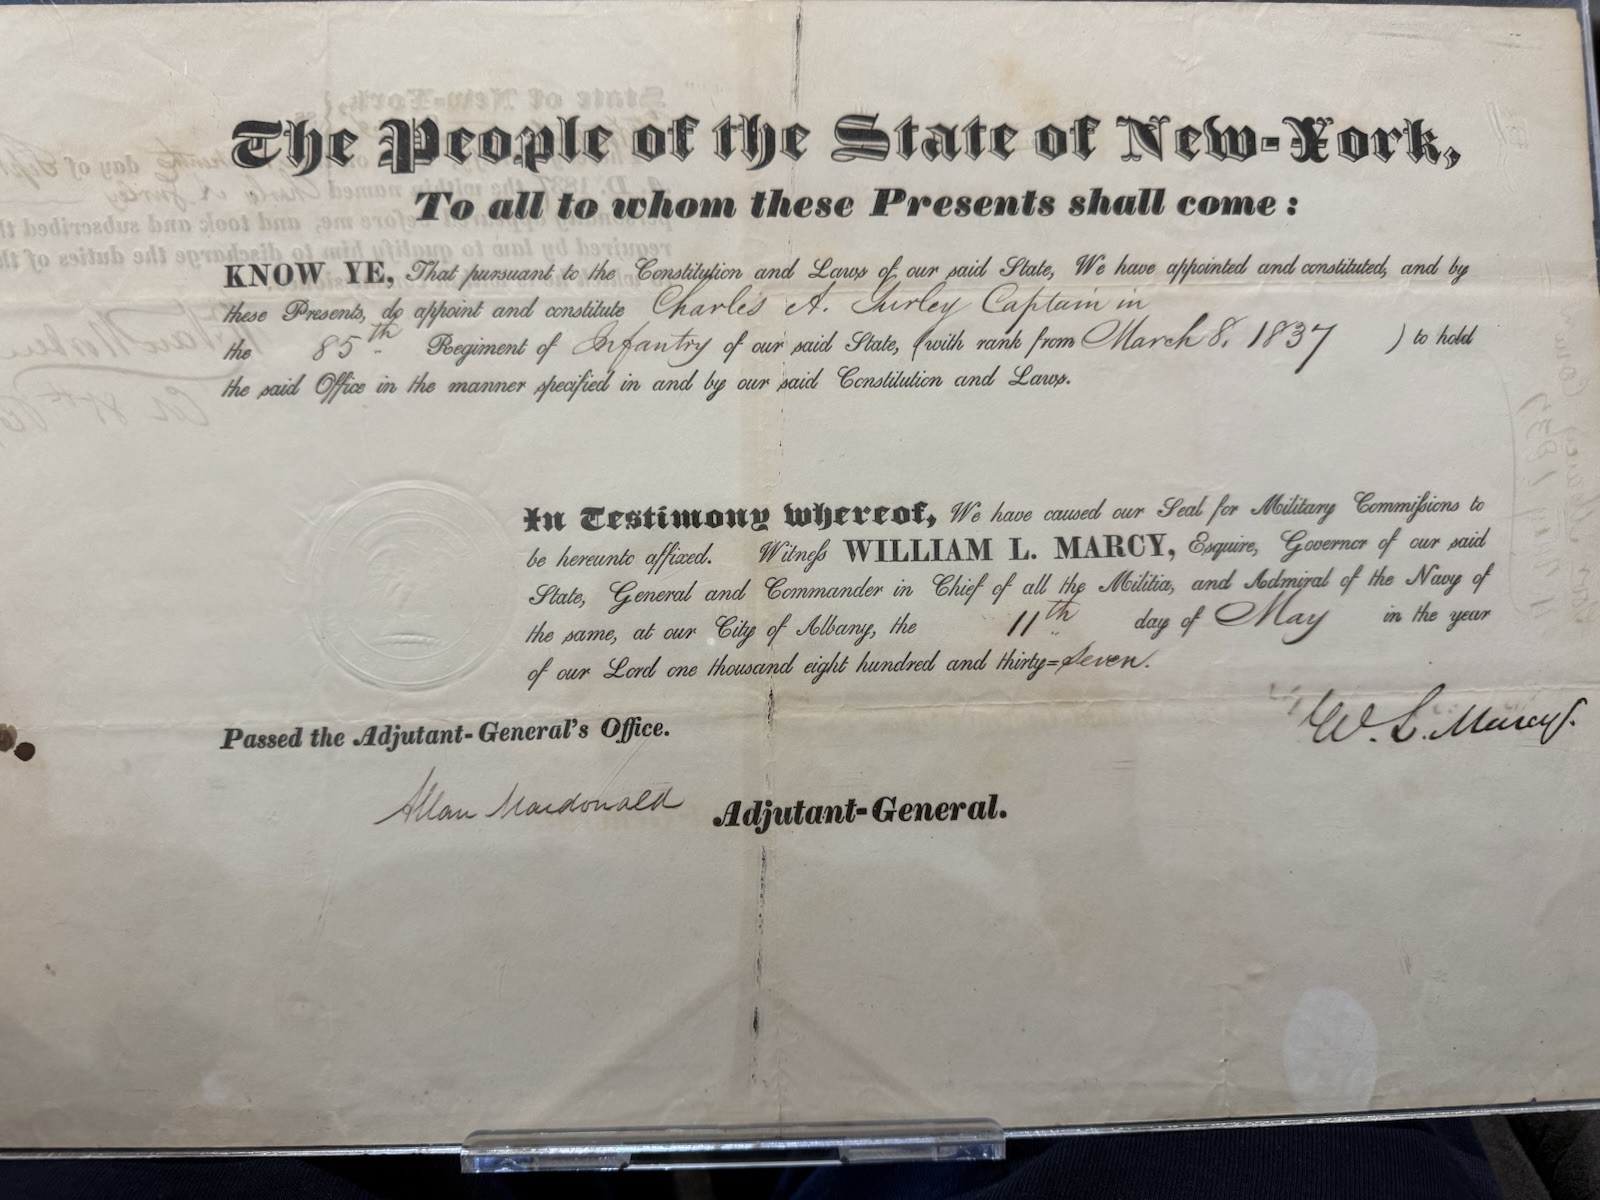 The People of the State of New-York,
To all to whom these Presents shall come:
KNOW YE, That pursuant to the Constitution and Laws of our said State, We have appointed and constituted, and by
these Presents, do appoint and constitute Charles A. Gurley Captain in
the 85th Regiment of Infantry of our said State, (with rank from March 8, 1837 ) to hold
the said Office in the manner specified in and by our said Constitution and Laws.
In Testimony whereof, We have caused our Seal for Military Commissions to
be hereunto affixed. Witness WILLIAM L. MARCY, Esquire, Governor of our said
State, General and Commander in Chief of all the Militia, and Admiral of the Navy of
the same, at our City of Albany, the 11th day of May in the year
of our Lord one thousand eight hundred and thirty=seven.
W. L. Marcy
Passed the Adjutant-General's Office.
Allan Macdonald Adjutant-General.